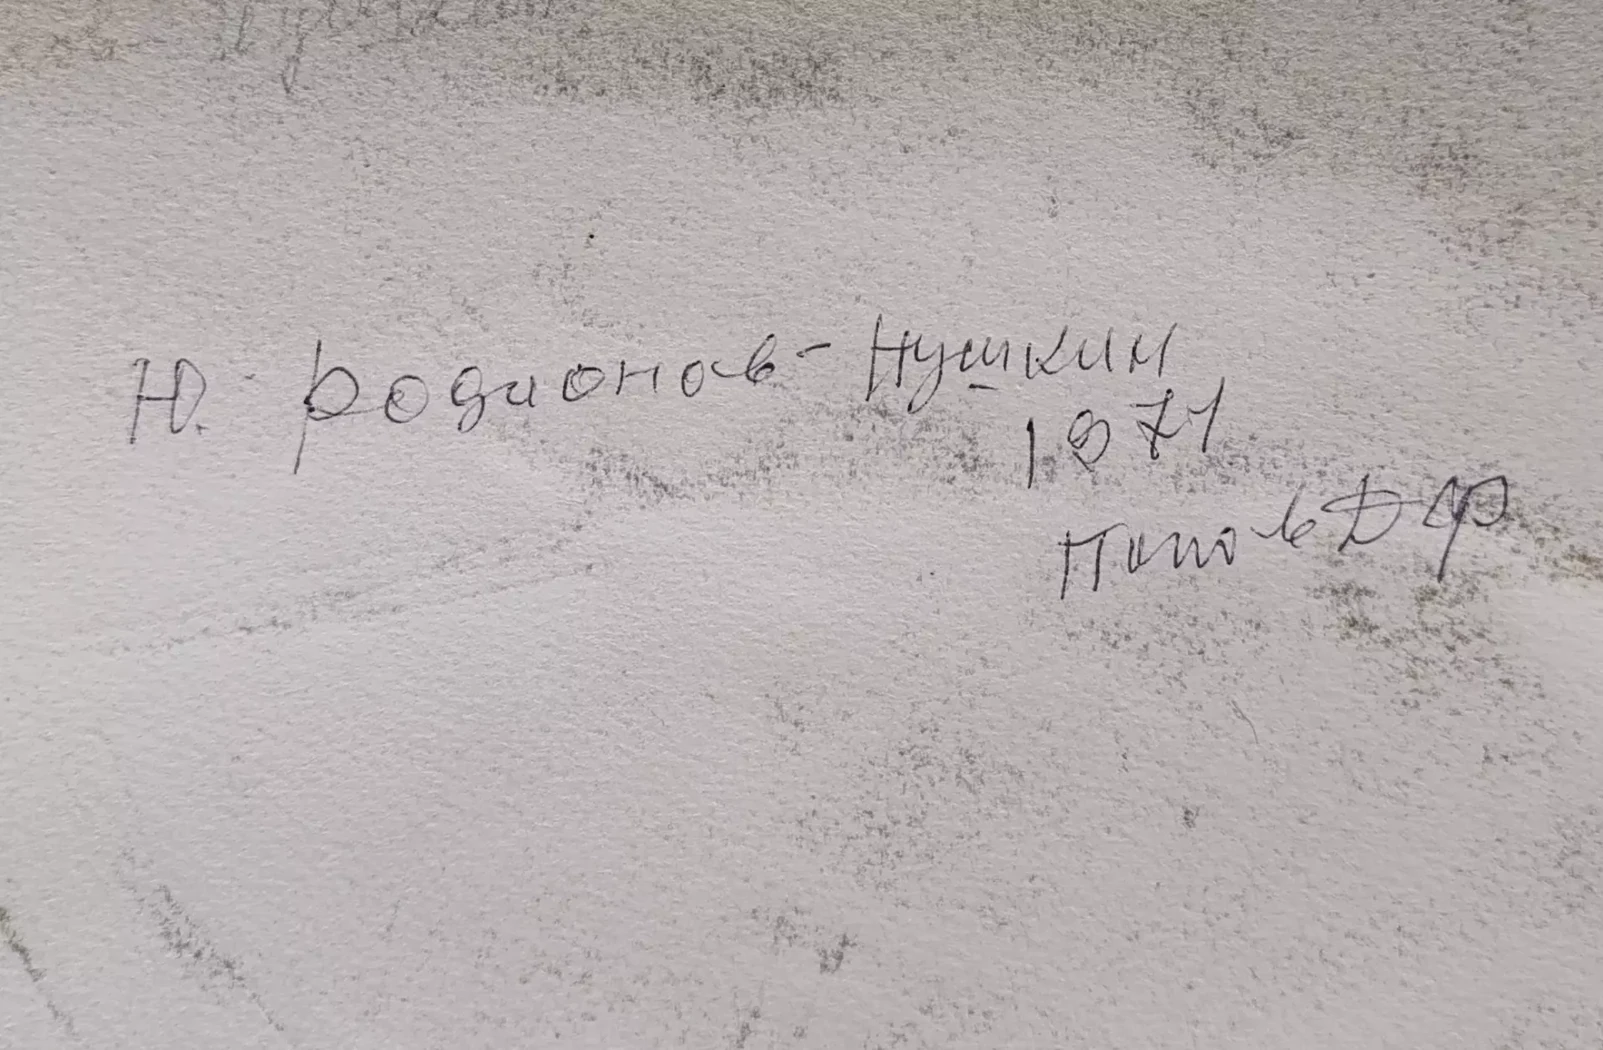 Ю. Родионов - Пушкин
1971
Попов ДФ